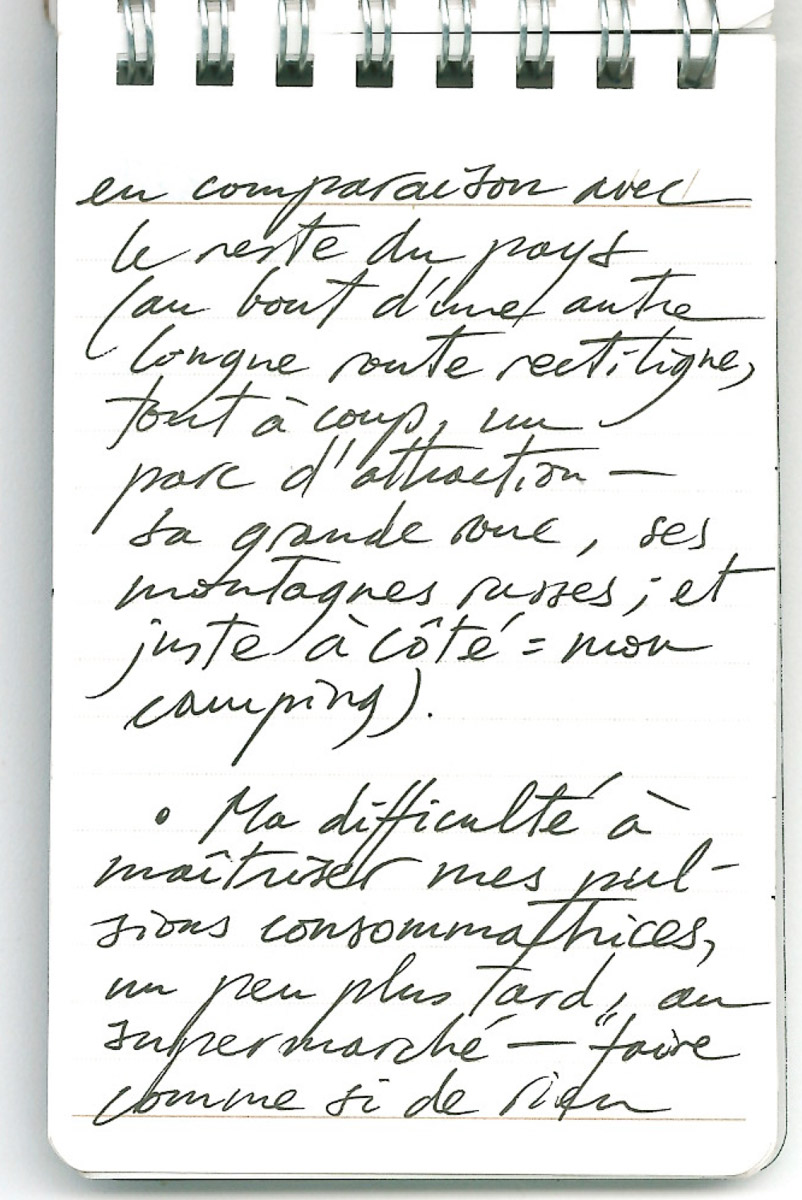 en comparaison avec
le reste du pays
(au bout d'une autre
longue route rectiligne,
tout à coup, un
parc d'attraction —
sa grande roue, ses
montagnes russes ; et
juste à côté = mon
camping).
• Ma difficulté à
maîtriser mes pul-
sions consommatrices,
un peu plus tard, au
supermarché — "faire
comme si de rien